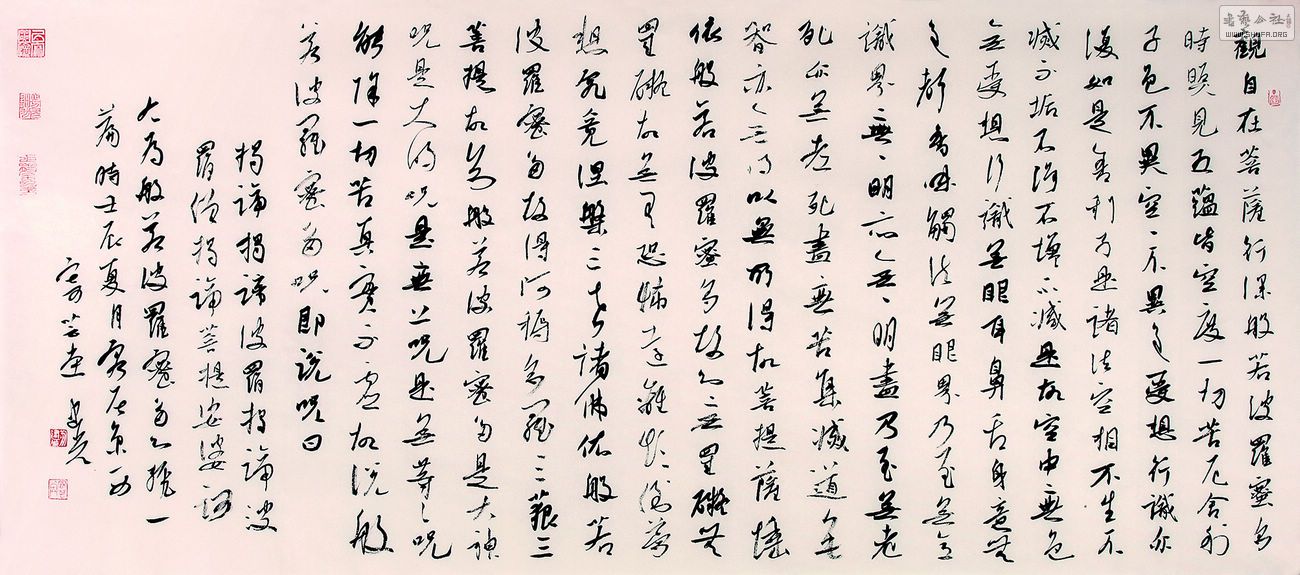 觀自在菩薩行深般若波羅蜜多
時照見五蘊皆空度一切苦厄舍利
子色不異空〻不異色受想行識亦
復如是舍利子是諸法空相不生不
滅不垢不淨不增不減是故空中無色
无受想行識無眼耳鼻舌身意無
色聲香味觸法無眼界乃至無意
識界無〻明亦无〻明盡乃至無老
死亦無老死盡無苦集滅道無
智亦无得以無所得故菩提薩埵
依般若波羅蜜多故心无罣礙無
罣礙故無有恐怖遠離顛倒夢
想究竟涅槃三世諸佛依般若
波羅蜜多故得阿耨多羅三藐三
菩提故知般若波羅蜜多是大神
咒是大明咒是無上咒是無等〻咒
能除一切苦真實不虛故說般
若波羅蜜多咒即說咒曰
揭諦揭諦波羅揭諦波
羅僧揭諦菩提娑婆訶
右為般若波羅蜜多心經一
篇時壬辰夏月客居京西
書藝公社
WWW.SHUFA.ORG